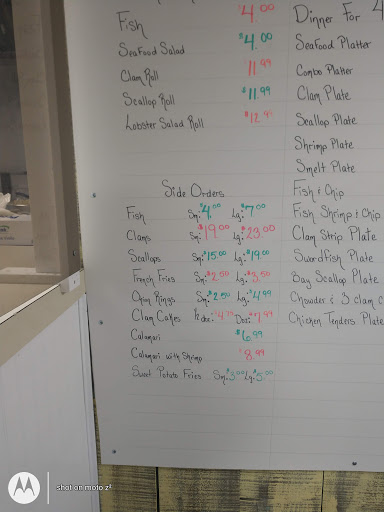 Fish $4.00
Seafood Salad $4.00
Clam Roll $11.99
Scallop Roll $11.99
Lobster Salad Roll
Side Orders
Fish Sm: $4.00 Lg: $7.00
Clams Sm: $19.00 Lg: $23.00
Scallops Sm: $15.00 Lg: $19.00
French Fries Sm: $2.50 Lg: $3.50
Onion Rings Sm: $2.50 Lg: $4.99
Clam Cakes ½ doz: Doz:
Calamari $6.99
Calamari with Shrimp $8.99
Sweet Potato Fries Sm: $3.00 Lg: $5.00
Dinner For
Seafood Platter
Combo Platter
Clam Plate
Scallop Plate
Shrimp Plate
Smelt Plate
Fish & Chip
Fish Shrimp & Chip
Clam Strip Plate
Swordfish Plate
Bay Scallop Plate
Chowder & 3 clam c
Chicken Tenders Plate
shot on moto z²